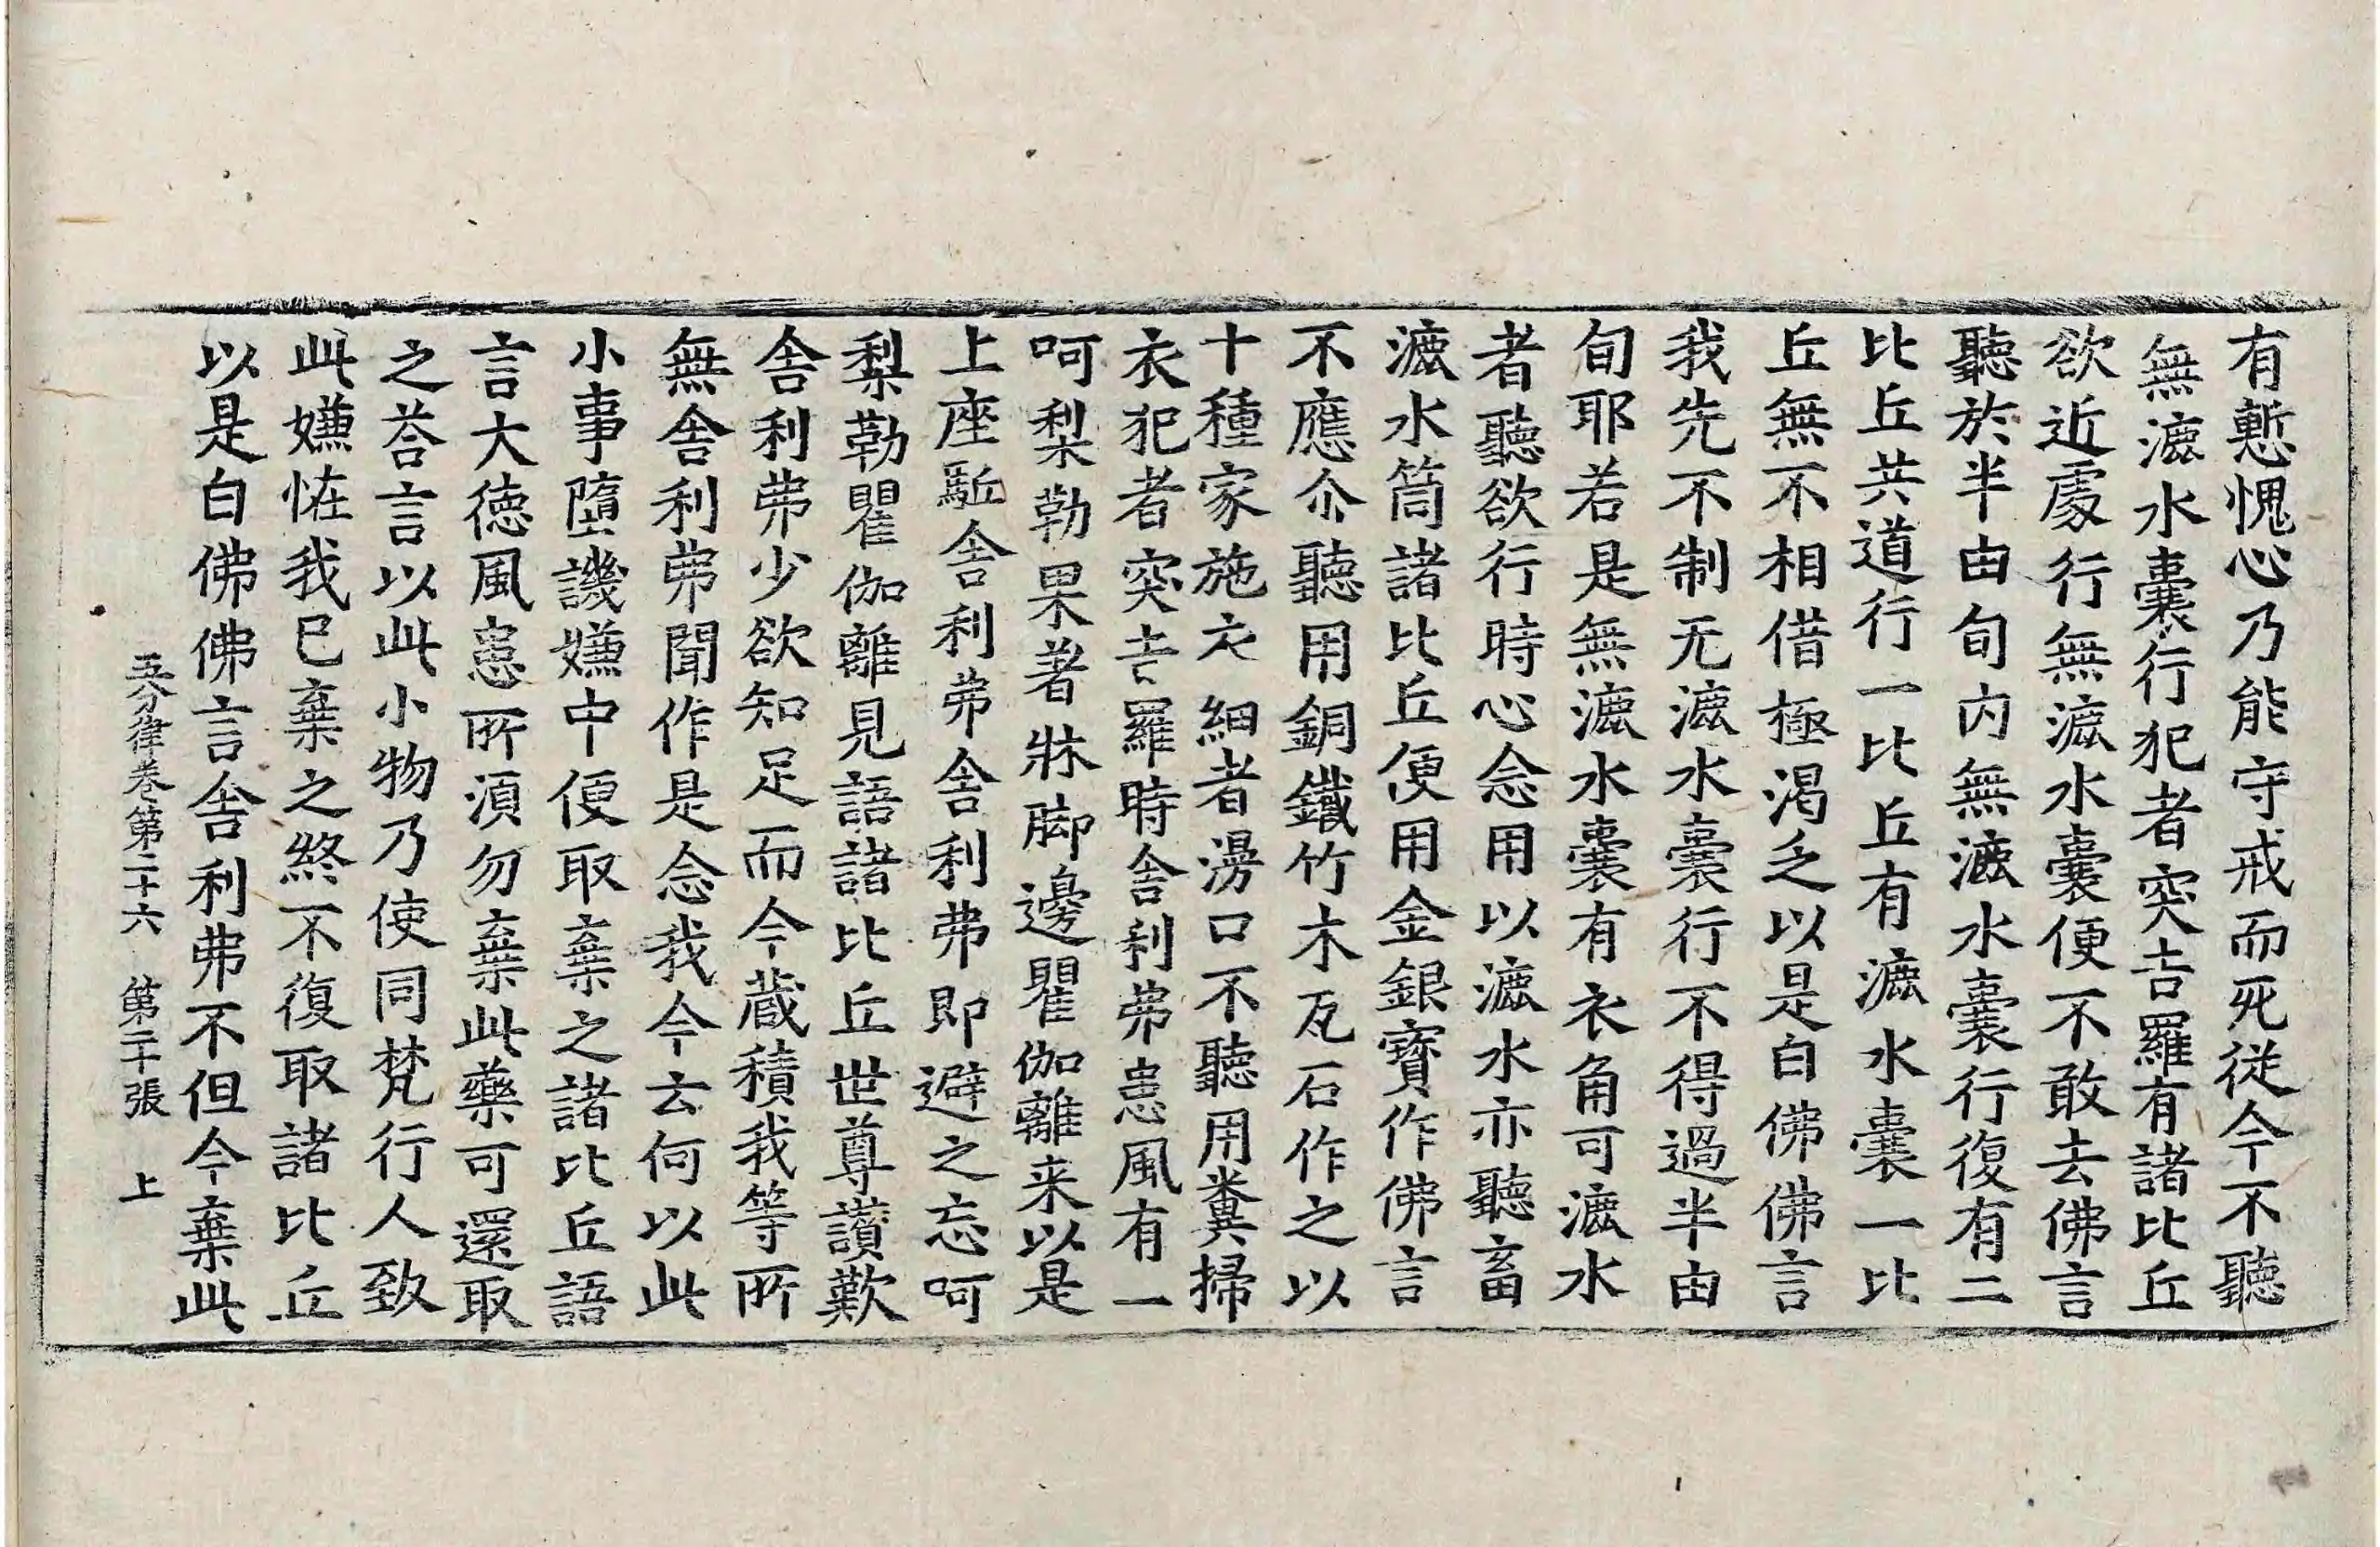 有慙愧心乃能守戒而死従今不聽
無漉水囊行犯者突吉羅有諸比丘
欲近處行無漉水囊便不敢去佛言
聽於半由旬内無漉水囊行復有二
比丘共道行一比丘有漉水囊一比
丘無不相借極渴乏以是白佛佛言
我先不制无漉水囊行不得過半由
旬耶若是無漉水囊有衣角可漉水
者聽欲行時心念用以漉水亦聽畜
漉水筒諸比丘便用金銀寶作佛言
不應尒聽用銅鐵竹木瓦石作之以
十種家施衣細者漫口不聽用糞掃
衣犯者突吉羅時舍利弗患風有一
呵梨勒果著牀脚邊瞿伽離来以是
上座駈舍利弗舍利弗即避之忘呵
梨勒瞿伽離見語諸比丘世尊讚歎
舍利弗少欲知足而今蔵積我等所
無舍利弗聞作是念我今云何以此
小事墮譏嫌中便取棄之諸比丘語
言大徳風患所湏勿棄此藥可還取
之荅言以此小物乃使同梵行人致
此嫌恠我已棄之終不復取諸比丘
以是白佛佛言舍利弗不但今棄此
五分律卷第二十六 第二十張 上